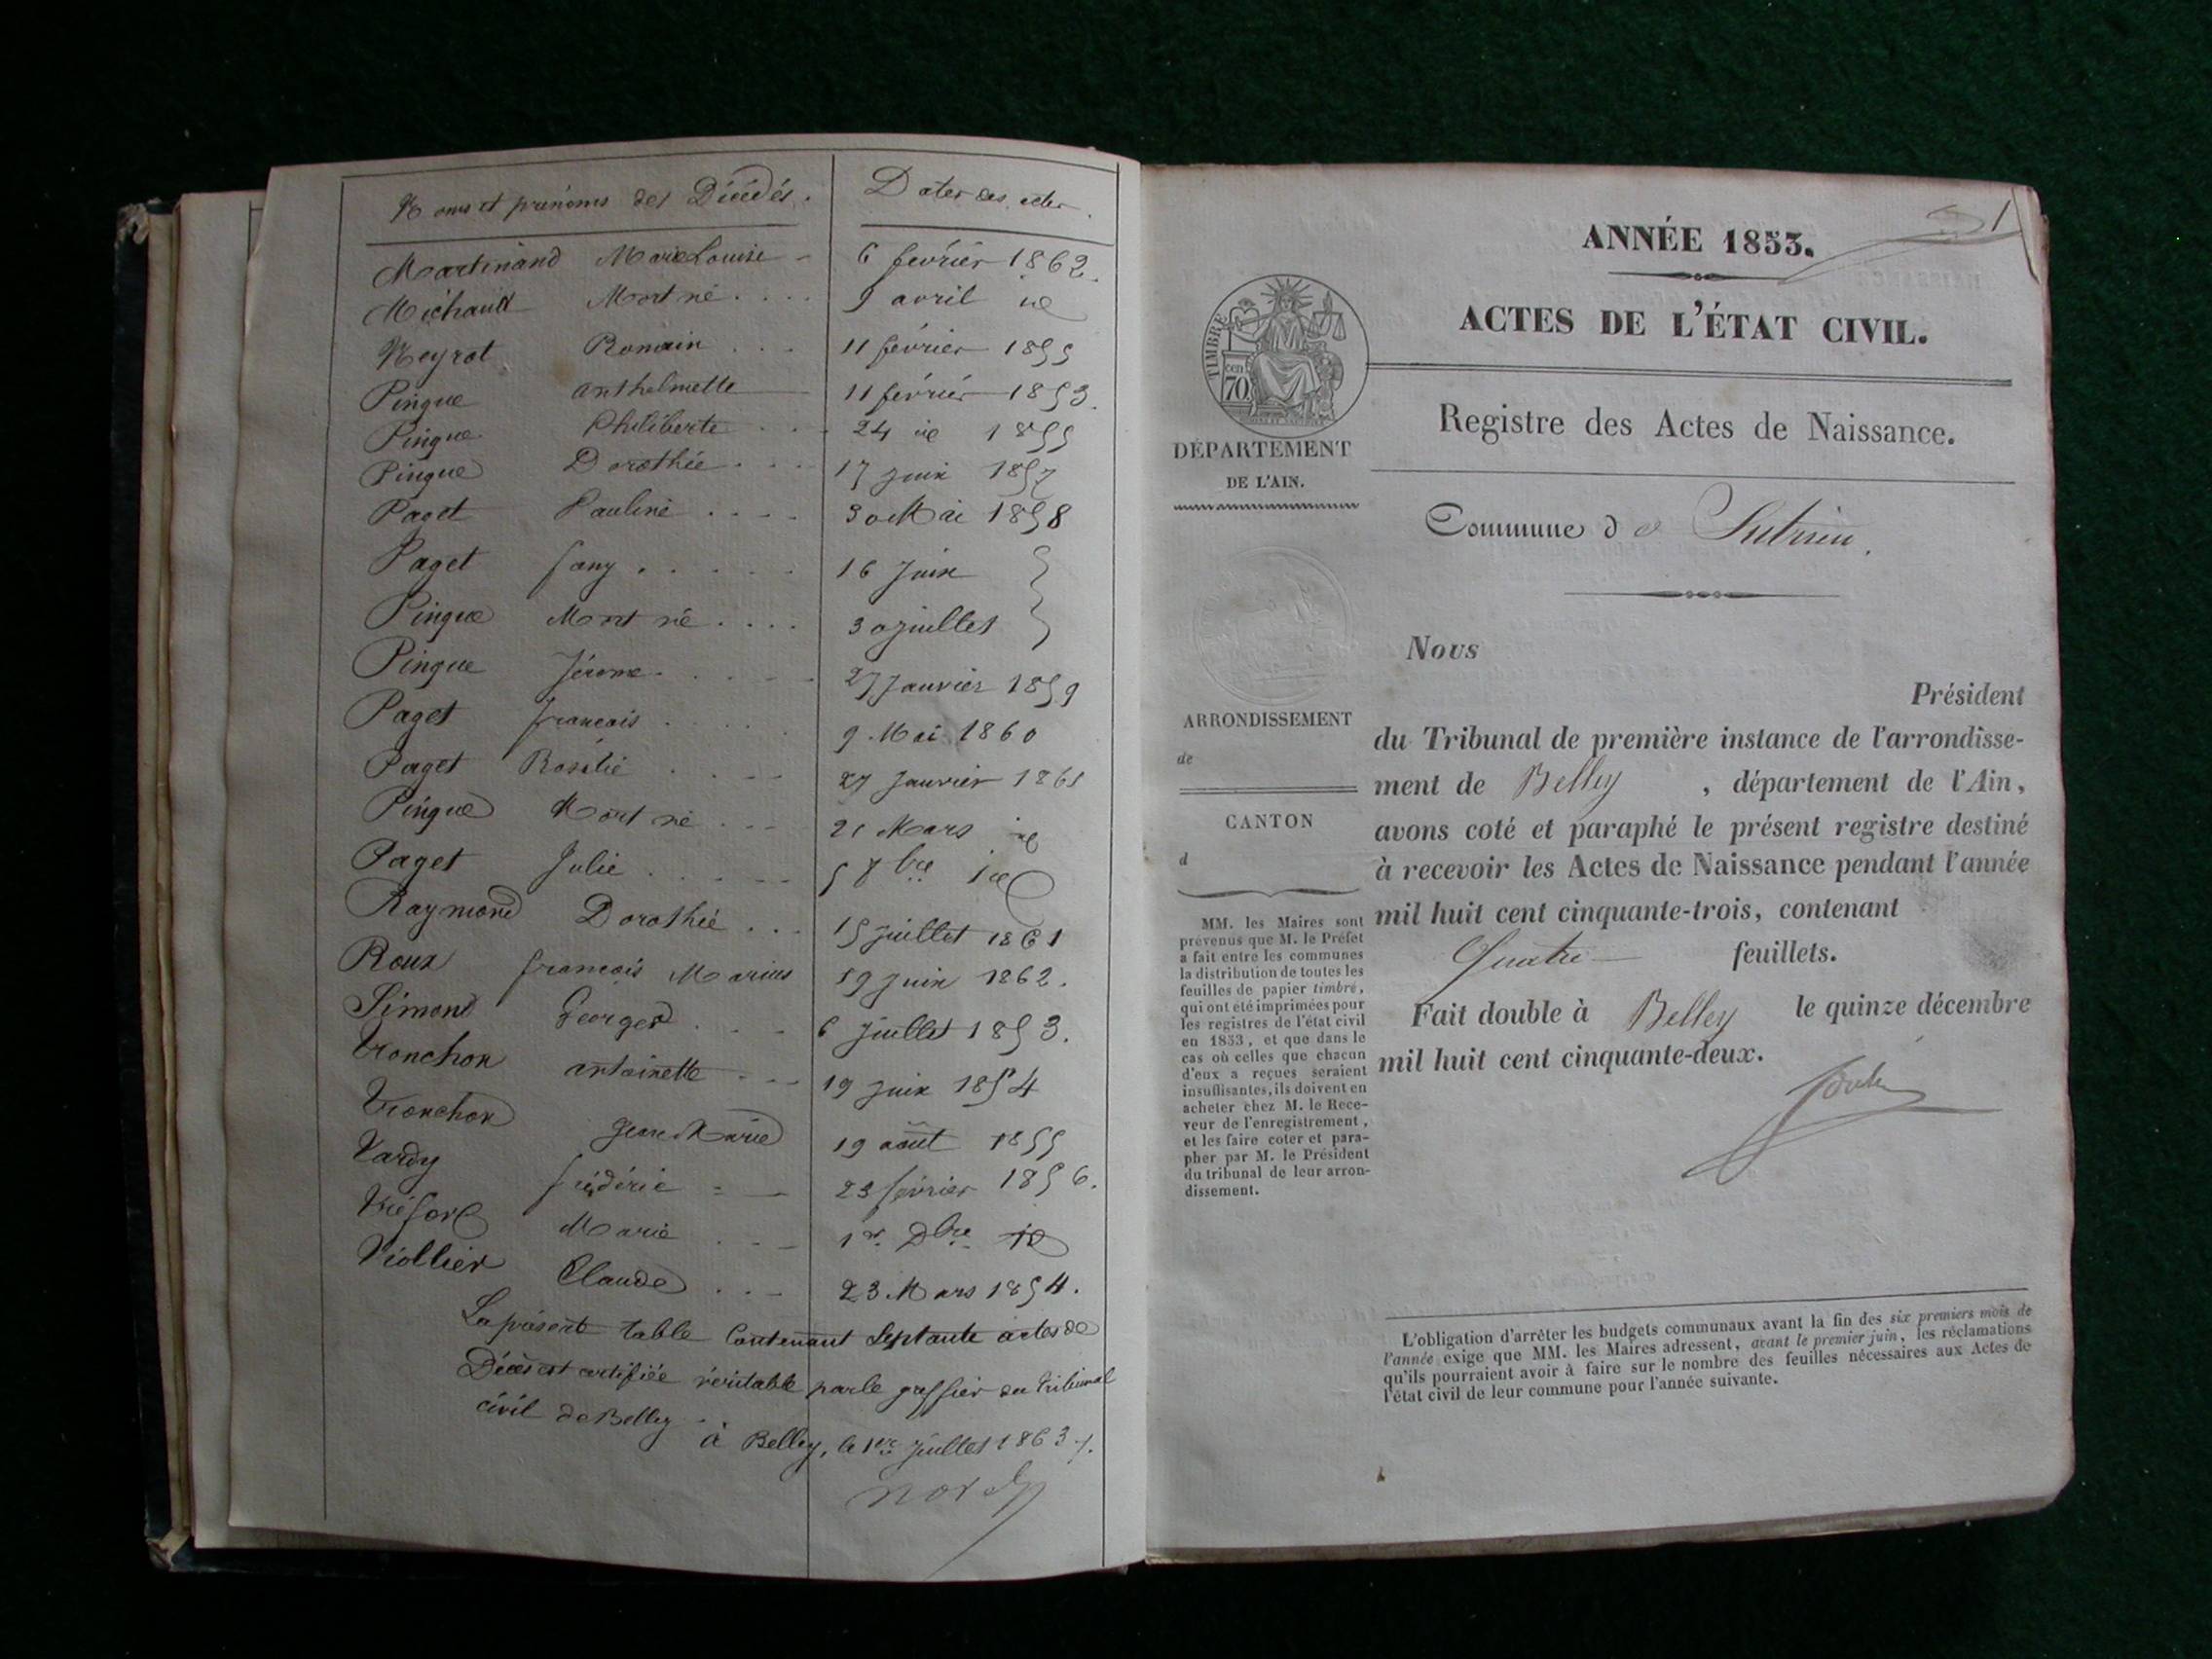 Noms et prénoms des Décédés. Dates des actes.
Martinand Marie Louise - 6 février 1862.
Michaud Mort né . . . . 9 avril id
Neyrot Romain . . . 11 février 1855
Pingue anthelmette 11 février 1853.
Pingue Philiberte . . . 24 id 1855
Pingue Dorothée . . . 17 juin 1857
Paget Pauline . . . . 30 Mai 1858
Paget fany . . . . . 16 Juin
Pingue Mort né . . . . 30 juillet
Pingue Jérome . . . . 27 Janvier 1859
Paget françois . . . . 9 Mai 1860
Paget Rosélie . . . . 27 Janvier 1861
Pingue Mort né . . . 21 Mars id
Paget Julie . . . . . 5 8bre id
Raymond Dorothée . . . 15 juillet 1861
Roux françois Marius 19 juin 1862.
Simond Georges . . . 6 juillet 1853.
Tronchon antoinette . . . 19 juin 1854
Tronchon Jean Marie 19 août 1855
Vardy frédéric = - 23 février 1856.
Marie . . . 1er Dbre id
Viollier Claude . . . 23 Mars 1854.
La présente table Contenant Septante actes de
Décès est certifiée véritable par le greffier du Tribunal
civil de Belley.
à Belley, le 1er juillet 1863
1
ANNÉE 1853.
ACTES DE L'ÉTAT CIVIL.
TIMBRE
cen
70.
Registre des Actes de Naissance.
DÉPARTEMENT
DE L'AIN.
Commune de Sutrieu.
Nous
Président
du Tribunal de première instance de l'arrondisse-
ment de Belley , département de l'Ain,
avons coté et paraphé le présent registre destiné
à recevoir les Actes de Naissance pendant l'année
mil huit cent cinquante-trois, contenant
Quatre feuillets.
Fait double à Belley le quinze décembre
mil huit cent cinquante-deux.
ARRONDISSEMENT
de
CANTON
d
MM. les Maires sont
prévenus que M. le Préfet
a fait entre les communes
la distribution de toutes les
feuilles de papier timbré,
qui ont été imprimées pour
les registres de l'état civil
en 1853, et que dans le
cas où celles que chacun
d'eux a reçues seraient
insuffisantes, ils doivent en
acheter chez M. le Rece-
veur de l'enregistrement,
et les faire coter et para-
pher par M. le Président
du tribunal de leur arron-
dissement.
L'obligation d'arrêter les budgets communaux avant la fin des six premiers mois de
l'année exige que MM. les Maires adressent, avant le premier juin, les réclamations
qu'ils pourraient avoir à faire sur le nombre des feuilles nécessaires aux Actes de
l'état civil de leur commune pour l'année suivante.